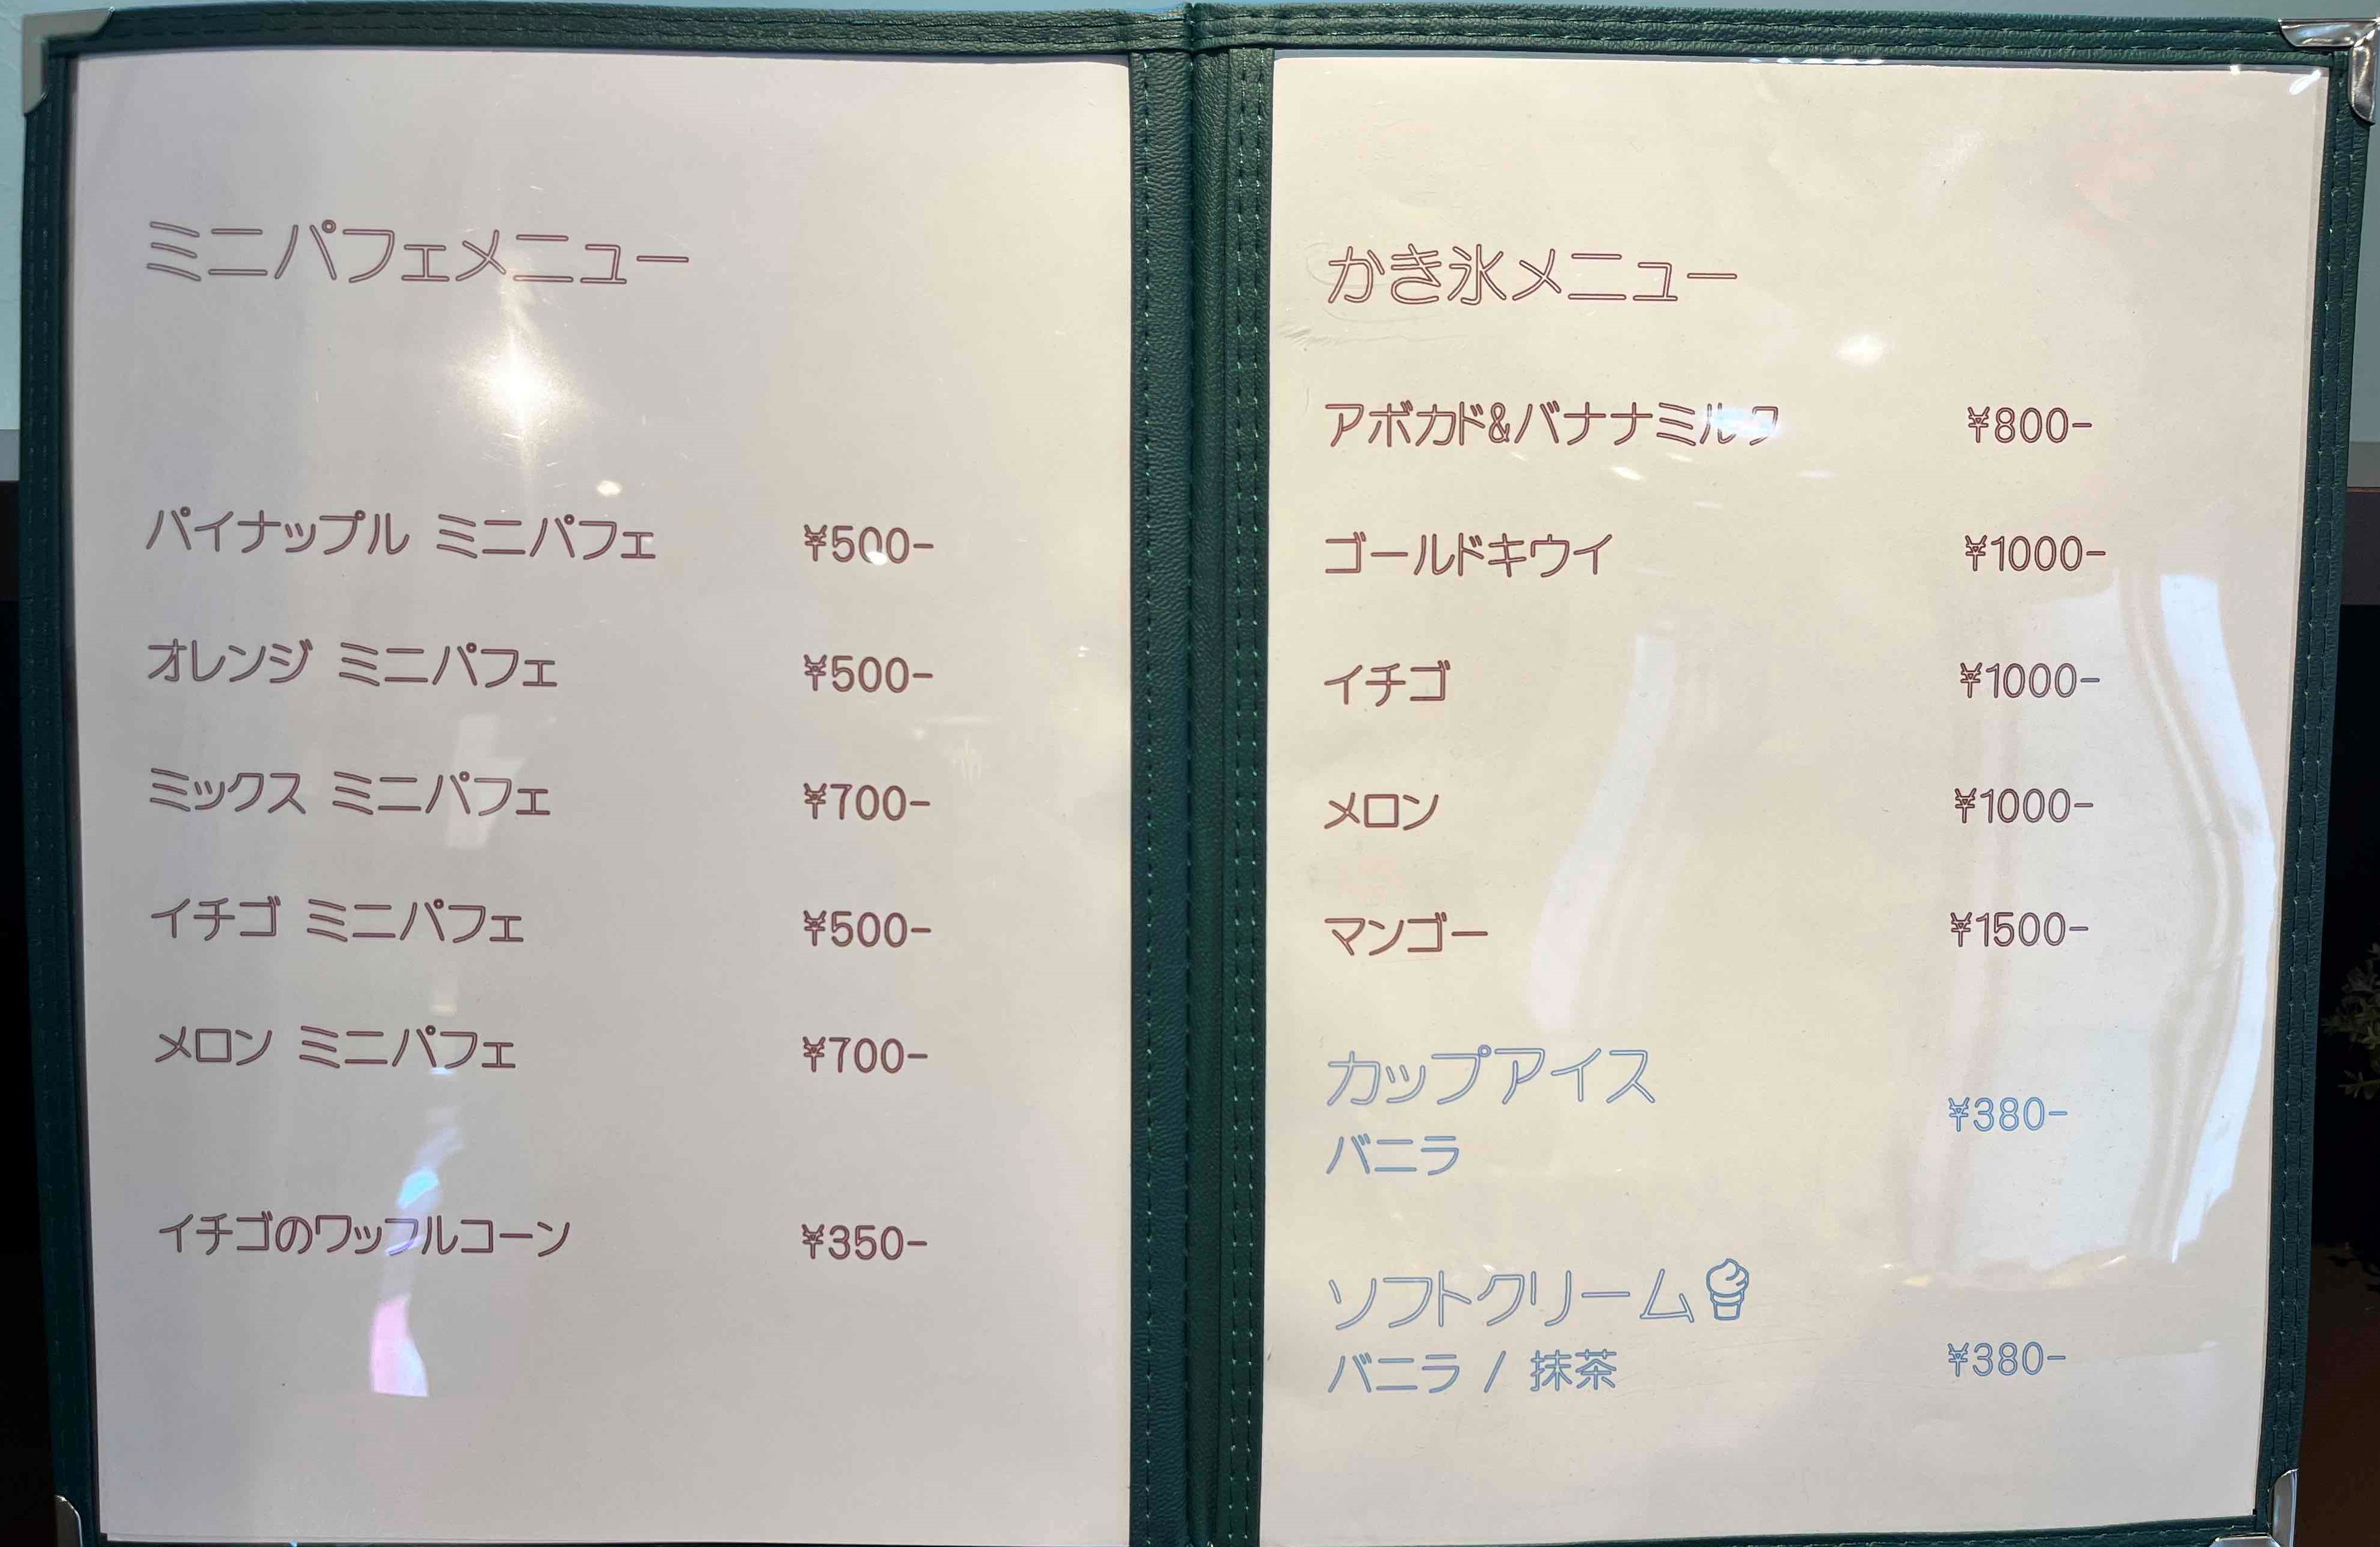 ミニパフェメニュー
パイナップル ミニパフェ ¥500-
オレンジ ミニパフェ ¥500-
ミックス ミニパフェ ¥700-
イチゴ ミニパフェ ¥500-
メロン ミニパフェ ¥700-
イチゴのワッフルコーン ¥350-
かき氷メニュー
アボカド&バナナミルク ¥800-
ゴールドキウイ ¥1000-
イチゴ ¥1000-
メロン ¥1000-
マンゴー ¥1500-
カップアイス
バニラ ¥380-
ソフトクリーム
バニラ / 抹茶 ¥380-